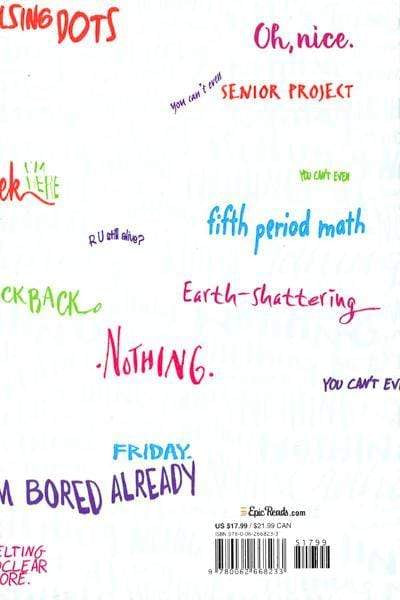 LSING DOTS
Oh, nice.
you can't even
SENIOR PROJECT
I'M
HERE
ek
YOU CAN'T EVEN
fifth period math
R U still alive?
CKBACK.
Earth-shattering
.NOTHING.
YOU CAN'T EV
FRIDAY.
M BORED ALREADY
ELTING
CLEAR
ORE.
EpicReads.com
US $17.99 / $21.99 CAN
ISBN 978-0-06-266823-3
51799
9 780062 668233